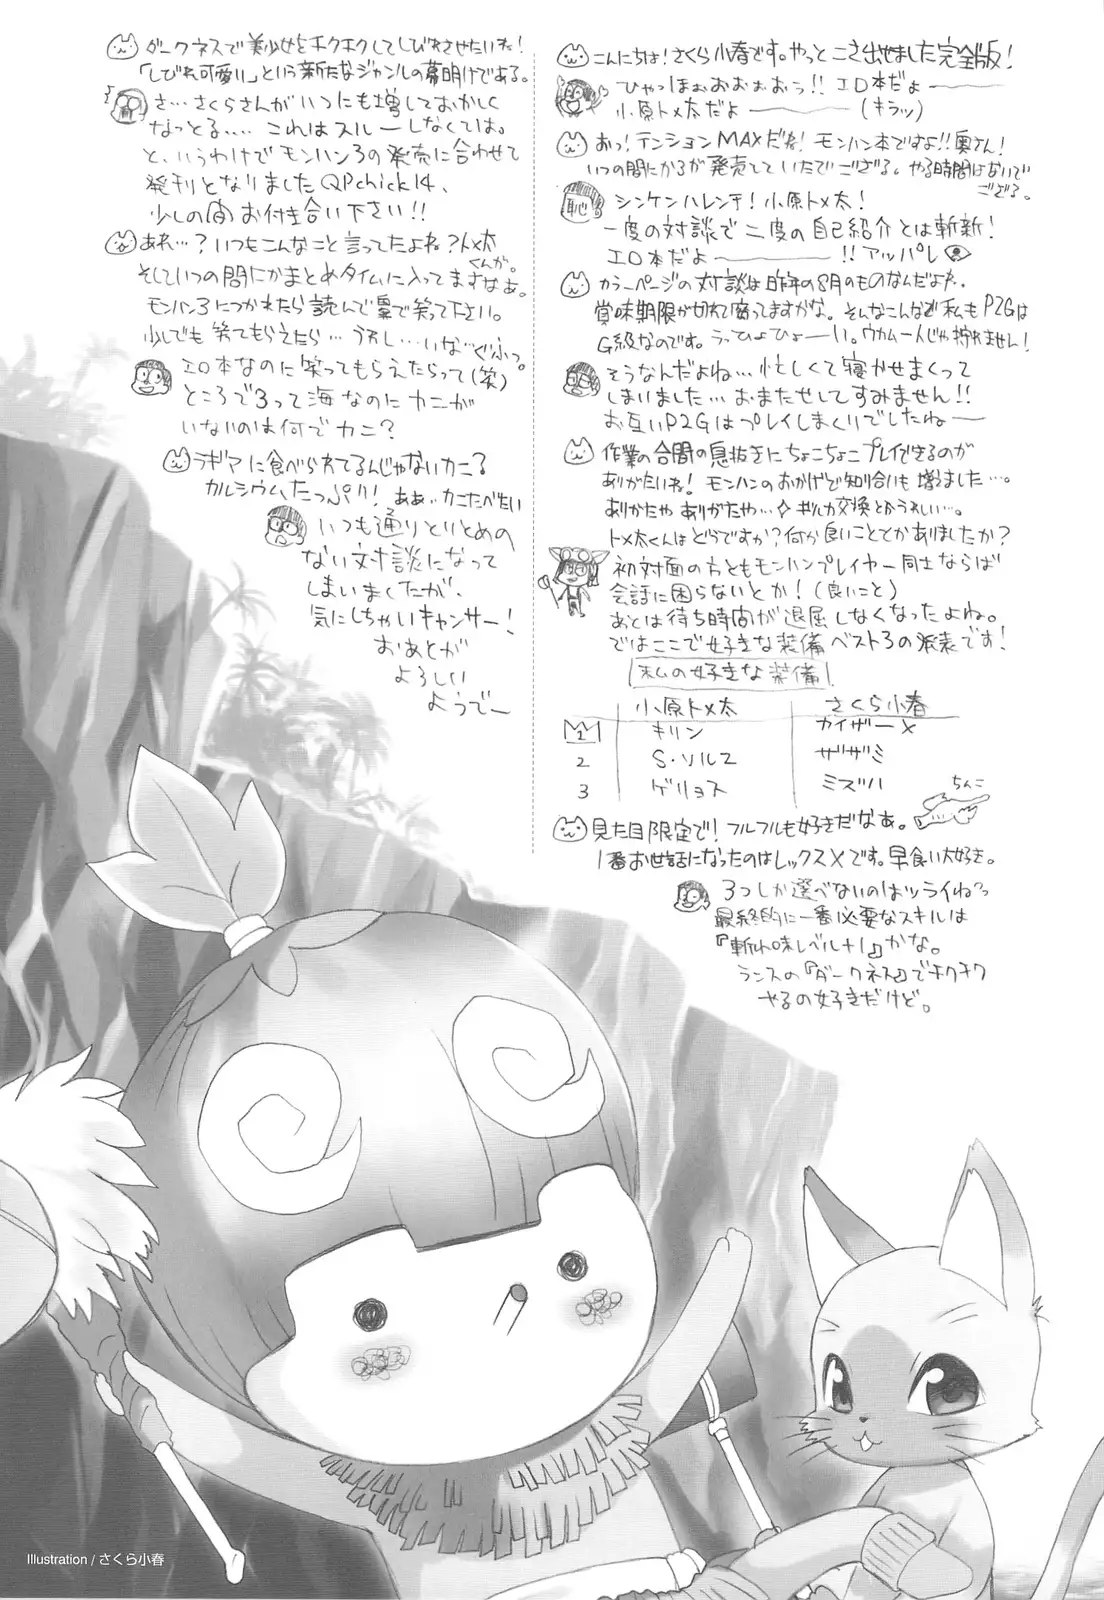 こんにちは!さくら小春です。やっとこさ出せました完全版!
ひゃっほぉおおぉぉぅ!! エロ本だよ―――
小原トメ太だよ――――(キラッ)
おっ!テンションMAXだね!モンハン本ですよ!!奥さん!
いつの間にか3が発売していたでござる。やる時間はないで
ござる。
恥
シンケンハレンチ!小原トメ太!
一度の対談で二度の自己紹介とは斬新!
エロ本だよ――――――!!アッパレ
カラーページの対談は昨年の8月のものなんだよね..
賞味期限が切れて腐ってますがな。そんなこんなで私もP2Gは
G級なのです。うっひょひょーい。ウカム一人じゃ狩れません!
そうなんだよね…忙しくて寝かせまくって
しまいました…おまたせしてすみません!!
お互いP2Gはプレイしまくりでしたね――
作業の合間の息抜きにちょこちょこプレイできるのが
ありがたいね!モンハンのおかげで知り合いも増えました…。
ありがたや ありがたや…◇ ギルカ交換とかうれしい…。
トメ太くんはどうですか?何か良いこととかありましたか?
初対面の方ともモンハンプレイヤー同士ならば
会話に困らないとか!(良いこと)
あとは待ち時間が退屈しなくなったよね。
ではここで好きな装備ベスト3の発表です!
私の好きな装備!
小原トメ太 さくら小春
1 キリン カイザーX
2 S・ソルZ ザザミ
3 ゲリョス ミズハ
ちんこ
見た目限定で!フルフルも好きだなぁ。
1番お世話になったのはレックスXです。早食い大好き。
3つしか選べないのはツライねっ
最終的に一番必要なスキルは
『斬れ味レベル+1』かな。
ランスの『ダークネス』でチクチク
やるの好きだけど。
ダークネスで美少女をチクチクしてしびれさせたいね!
「しびれ可愛い」という新たなジャンルの幕明けである。
さ…さくらさんがいつにも増しておかしく
なっとる…. これはスルーしなくては。
と、いうわけでモンハン3の発売に合わせて
発刊となりましたQPchick14、
少しの間お付き合い下さい!!
あれ…?いつもこんなこと言ってたよね?トメ太
くんが。
そしていつの間にかまとめタイムに入ってますなぁ。
モンハン3につかれたら読んで鼻で笑って下さい。
少しでも笑てもらえたら…うれし…いな…ぐふっ。
エロ本なのに笑ってもらえたらって(笑)
ところで3って海なのにカニが
いないのは何でカニ?
ラギアに食べられてるんじゃないカニ3
カルシウムたっぷり! ああ..カニたべたい
いつも通りとりとめの
ない対談になって
しまいましたが、
気にしちゃいキャンサー!
おあとが
よろしい
ようでー
Illustration / さくら小春